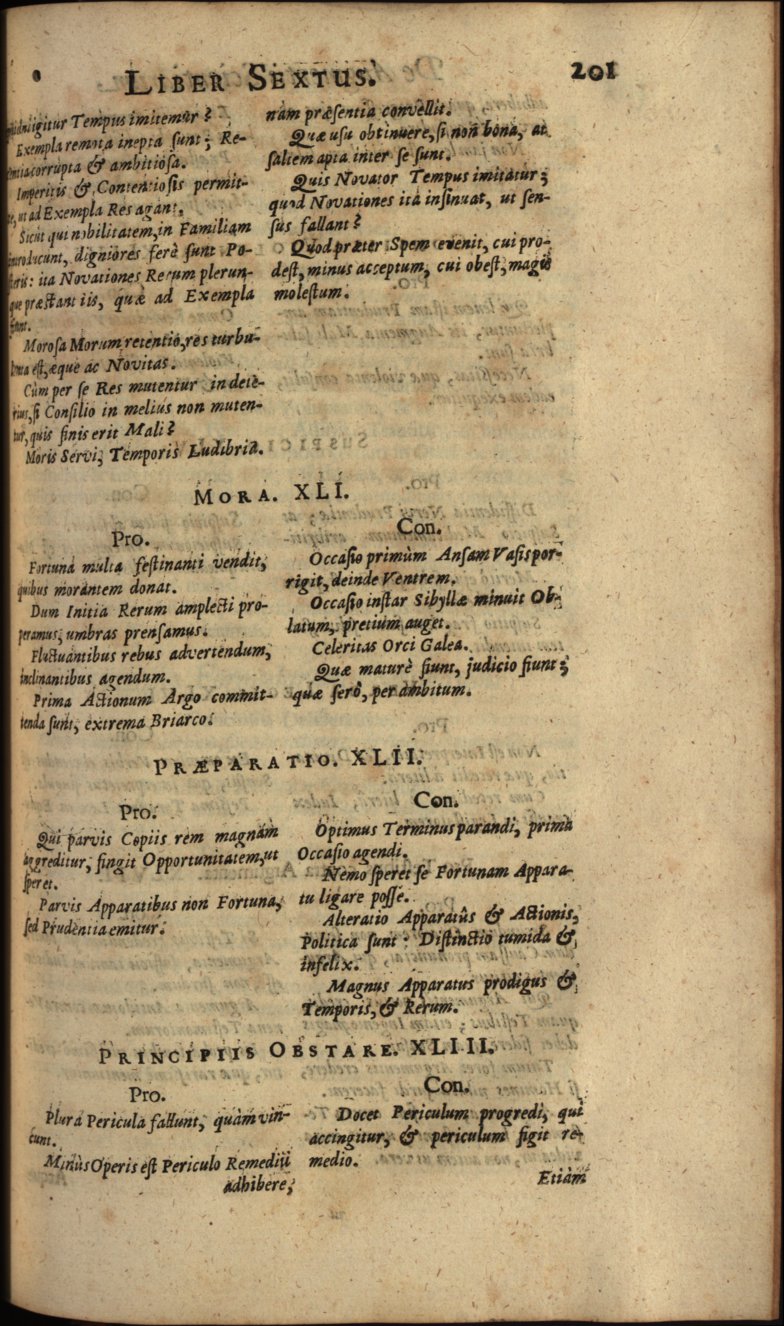 LIBER SEXTUS. 201
igitur Tempus imitemur?
Exempla remota inepta sunt; Re-
corrupta & ambitiosa.
Imperitis & Contentiosis permit-
ut ad Exempla Res agant.
Sicut qui nobilitatem, in Familiam
introducunt, digniores ferè sunt Po-
steris: ita Novationes Rerum plerun-
que præstant iis, quæ ad Exempla
fiunt.
Morosa Morum retentio, res turbu-
lenta est, æque ac Novitas.
Cùm per se Res mutentur in dete-
rius, si Consilio in melius non muten-
tur, quis finis erit Mali?
Moris Servi; Temporis Ludibria.
nam præsentia convellit.
Quæ usu obtinuere, si non bona, at
saltem apta inter se sunt.
Quis Novator Tempus imitatur;
quod Novationes itâ insinuat, ut sen-
sus fallant?
Quod præter Spem evenit, cui pro-
dest, minus acceptum, cui obest, magis
molestum.
MORA. XLI.
Pro.
Fortuna multa festinanti vendit,
quibus morantem donat.
Dum Initia Rerum amplecti pro-
peramus; umbras prensamus.
Fluctuantibus rebus advertendum,
inclinantibus agendum.
Prima Actionum Argo commit-
tenda sunt, extrema Briareo.
Con.
Occasio primùm Ansam Vasis por-
rigit, deinde Ventrem.
Occasio instar Sibyllæ minuit Ob-
latum, pretium auget.
Celeritas Orci Galea.
Quæ maturè fiunt, judicio fiunt;
quæ serò, per ambitum.
PRÆPARATIO. XLII.
Pro.
Qui parvis Copiis rem magnam
aggreditur, fingit Opportunitatem, ut
speret.
Parvis Apparatibus non Fortuna,
sed Prudentia emitur.
Con.
Optimus Terminus parandi, prima
Occasio agendi.
Nemo speret se Fortunam Appara-
tu ligare posse.
Alteratio Apparatûs & Actionis,
Politica sunt: Distinctio tumida &
infelix.
Magnus Apparatus prodigus &
Temporis, & Rerum.
PRINCIPIIS OBSTARE. XLIII.
Pro.
Plura Pericula fallunt, quàm vin-
cunt.
Minùs Operis est Periculo Remedii
adhibere;
Con.
Docet Periculum progredi, qui
accingitur, & periculum figit re-
medio.
Etiàm